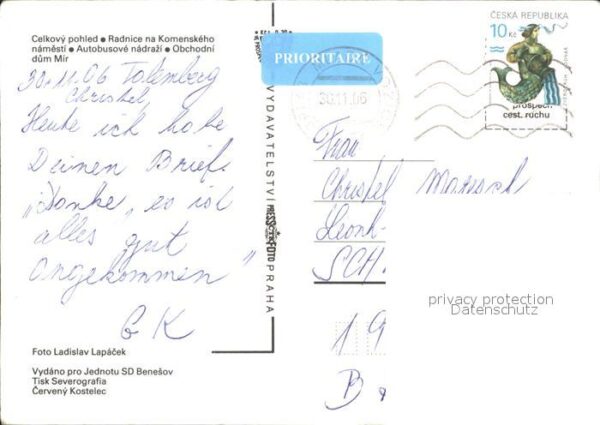 Celkový pohled ● Radnice na Komenského
náměstí ● Autobusové nádraží ● Obchodní
dům Mír
30.11.06 Tolemberg
Christel,
Heute ich habe
Deinen Brief
"Danke, es ist
alles gut
angekommen"
G K
Foto Ladislav Lapáček
Vydáno pro Jednotu SD Benešov
Tisk Severografia
Červený Kostelec
VYDAVATELSTVÍ PRESSFOTO PRAHA
PRIORITAIRE
30.11.06
ČESKÁ REPUBLIKA
10 Kč
prospěch
cest. ruchu
Frau
Christel
Leonh-
SCH
19
B
privacy protection
Datenschutz